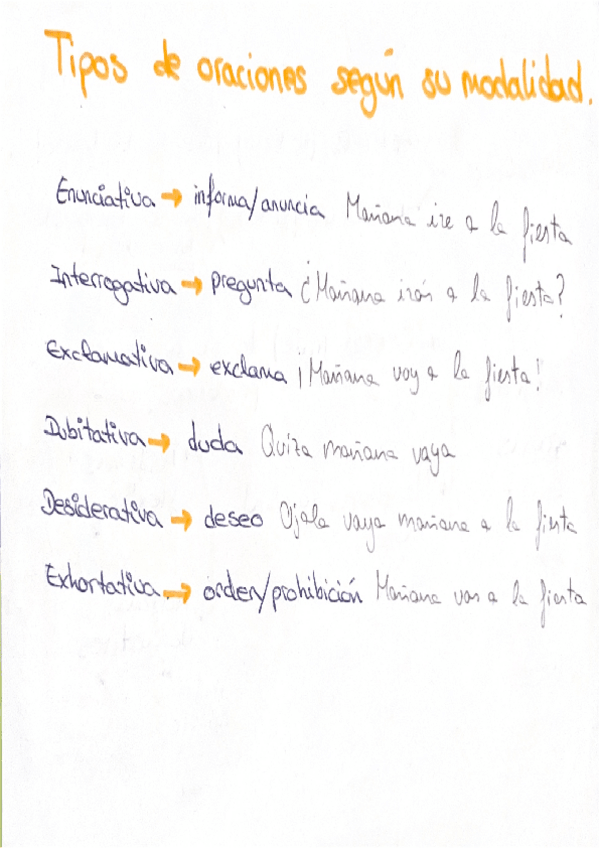 Tipos de oraciones según su modalidad.
Enunciativa → informa/anuncia Mañana ire a la fiesta
Interrogativa → pregunta ¿Mañana irás a la fiesta?
Exclamativa → exclama ¡Mañana voy a la fiesta!
Dubitativa → duda Quiza mañana vaya
Desiderativa → deseo Ojala vaya mañana a la fiesta
Exhortativa → orden/prohibición Mañana vas a la fiesta